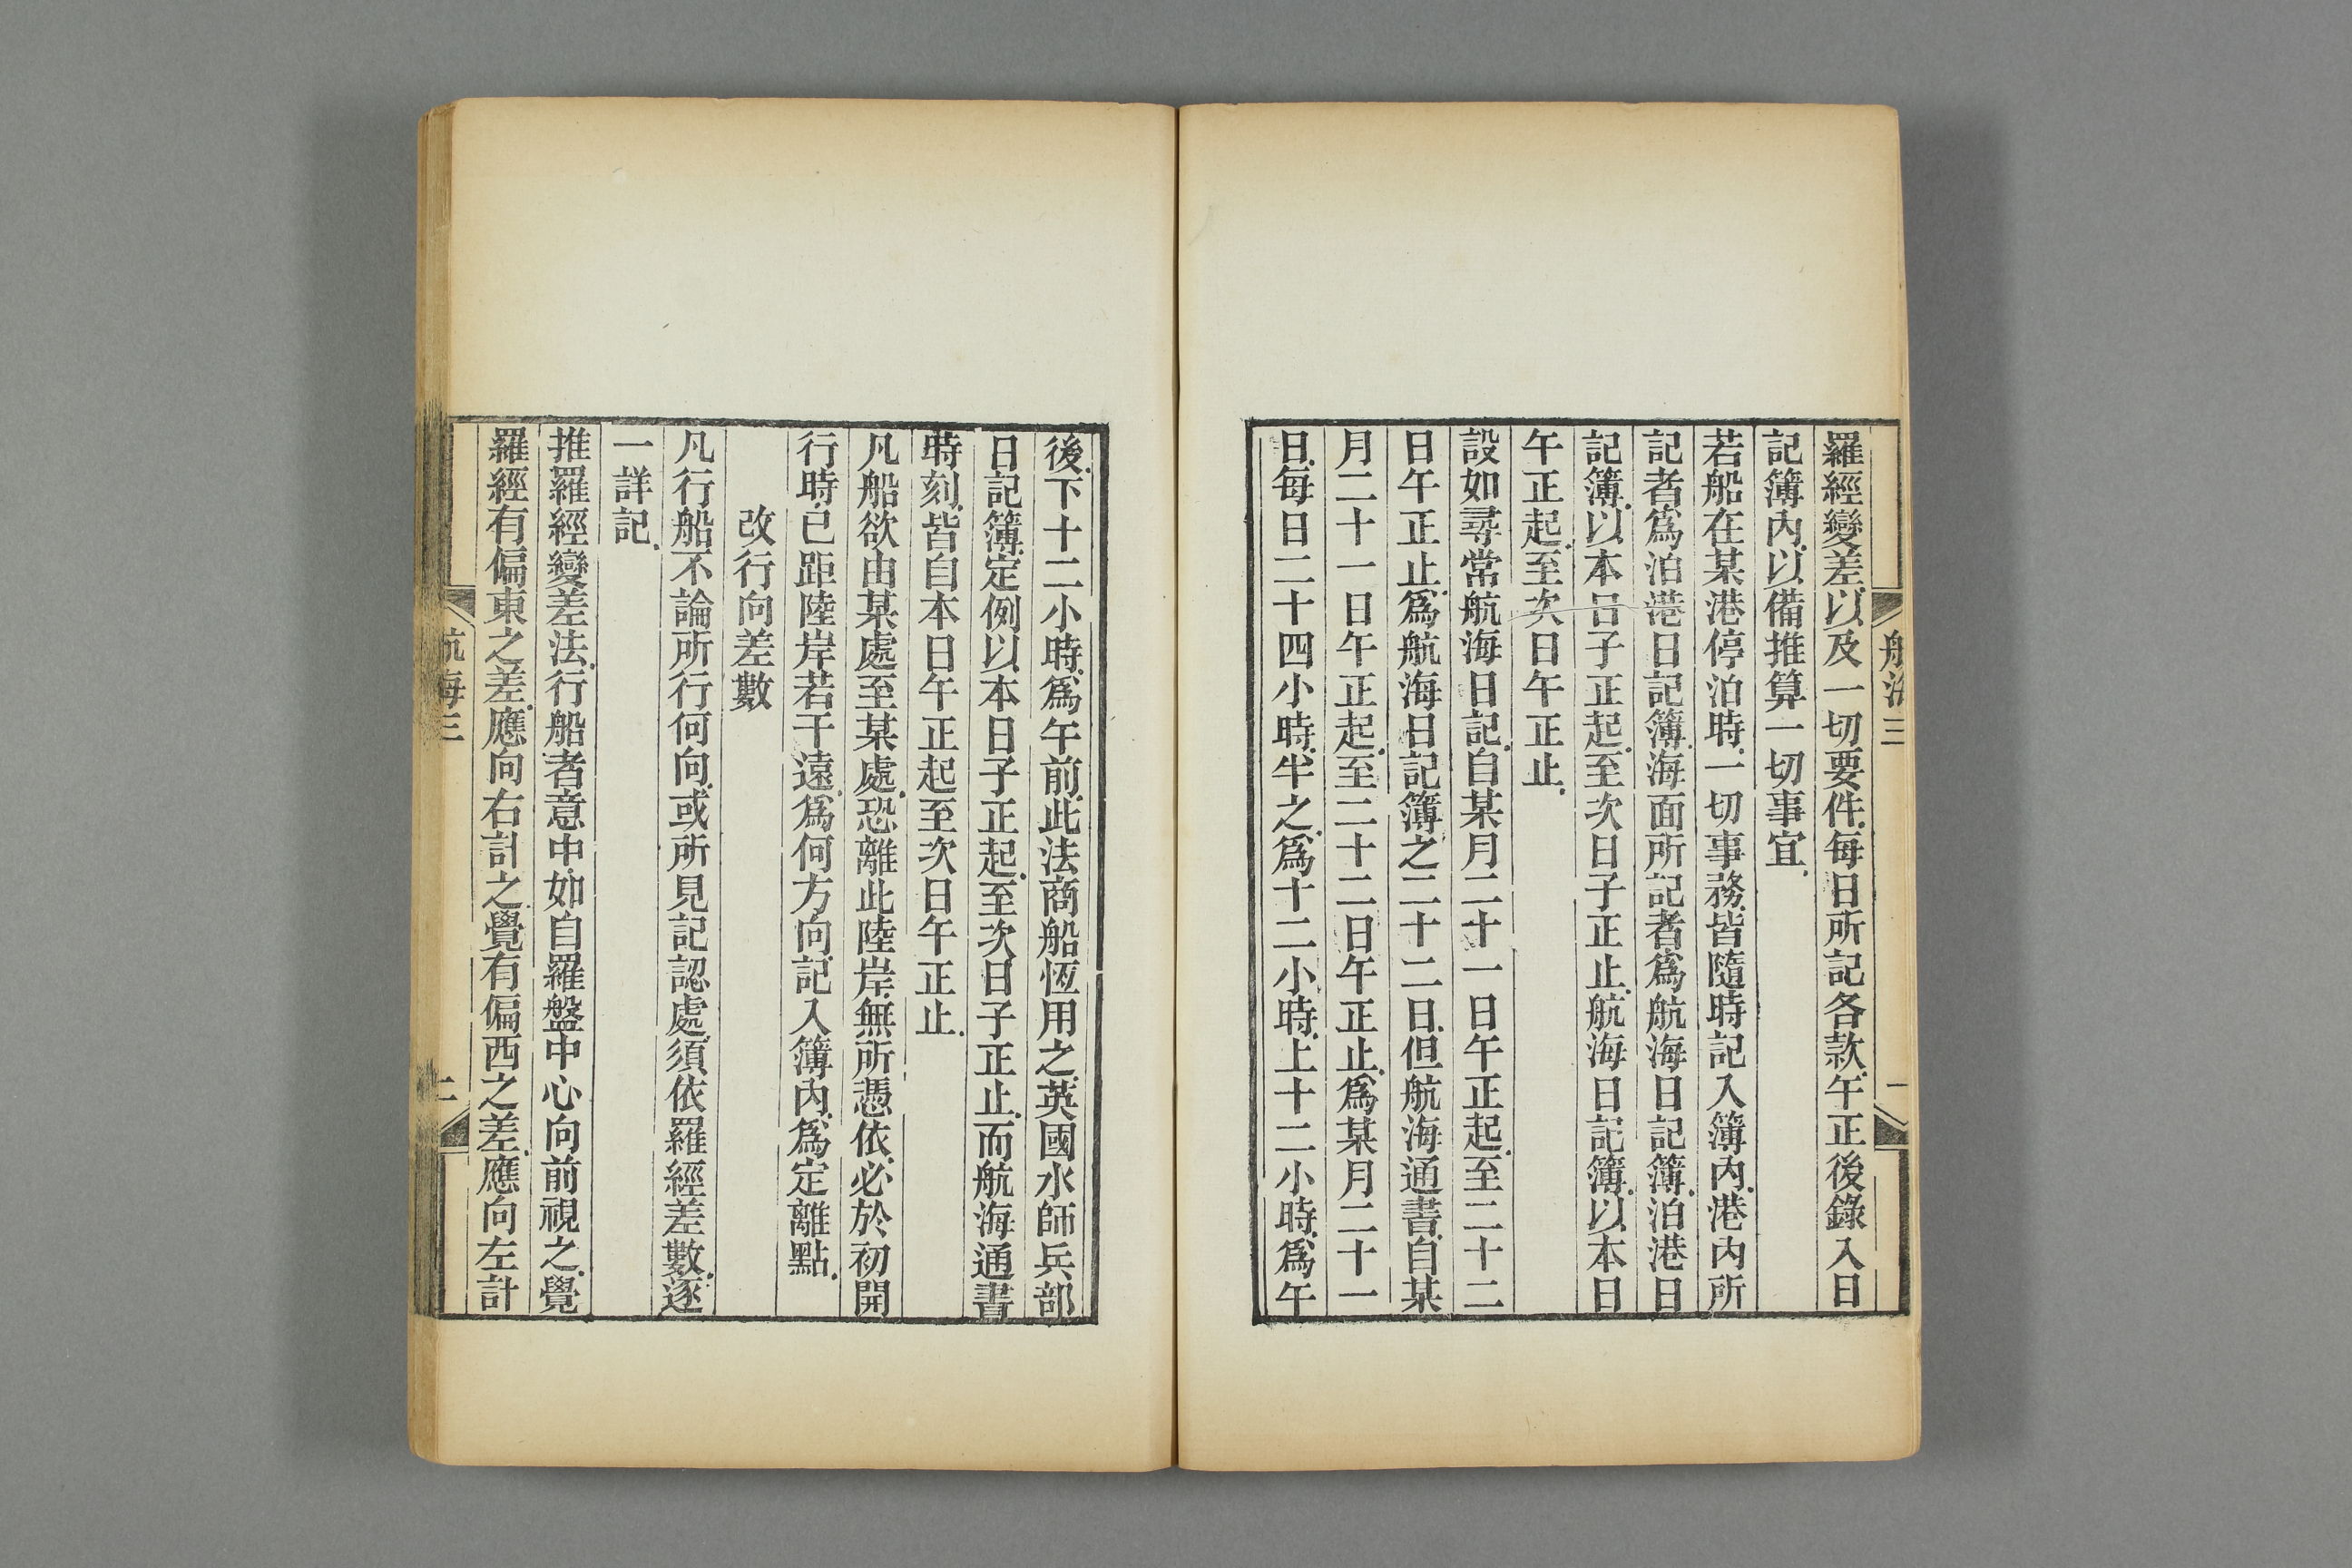 羅經變差以及一切要件每日所記各款午正後錄入日
記簿內以備推算一切事宜
若船在某港停泊時一切事務皆隨時記入簿內港內所
記者爲泊港日記簿海面所記者爲航海日記簿泊港日
記簿以本日子正起至次日子正止航海日記簿以本日
午正起至次日午正止
設如尋常航海日記自某月二十一日午正起至二十二
日午正止爲航海日記簿之二十二日但航海通書自某
月二十一日午正起至二十二日午正止爲某月二十一
日每日二十四小時半之爲十二小時上十二小時爲午
後下十二小時爲午前此法商船恆用之英國水師兵部
日記簿定例以本日子正起至次日子正止而航海通書
時刻皆自本日午正起至次日午正止
凡船欲由某處至某處恐離此陸岸無所憑依必於初開
行時已距陸岸若干遠爲何方向記入簿內爲定離點
改行向差數
凡行船不論所行何向或所見記認處須依羅經差數逐
一詳記
推羅經變差法行船者意中如自羅盤中心向前視之覺
羅經有偏東之差應向右計之覺有偏西之差應向左計
航海三
二